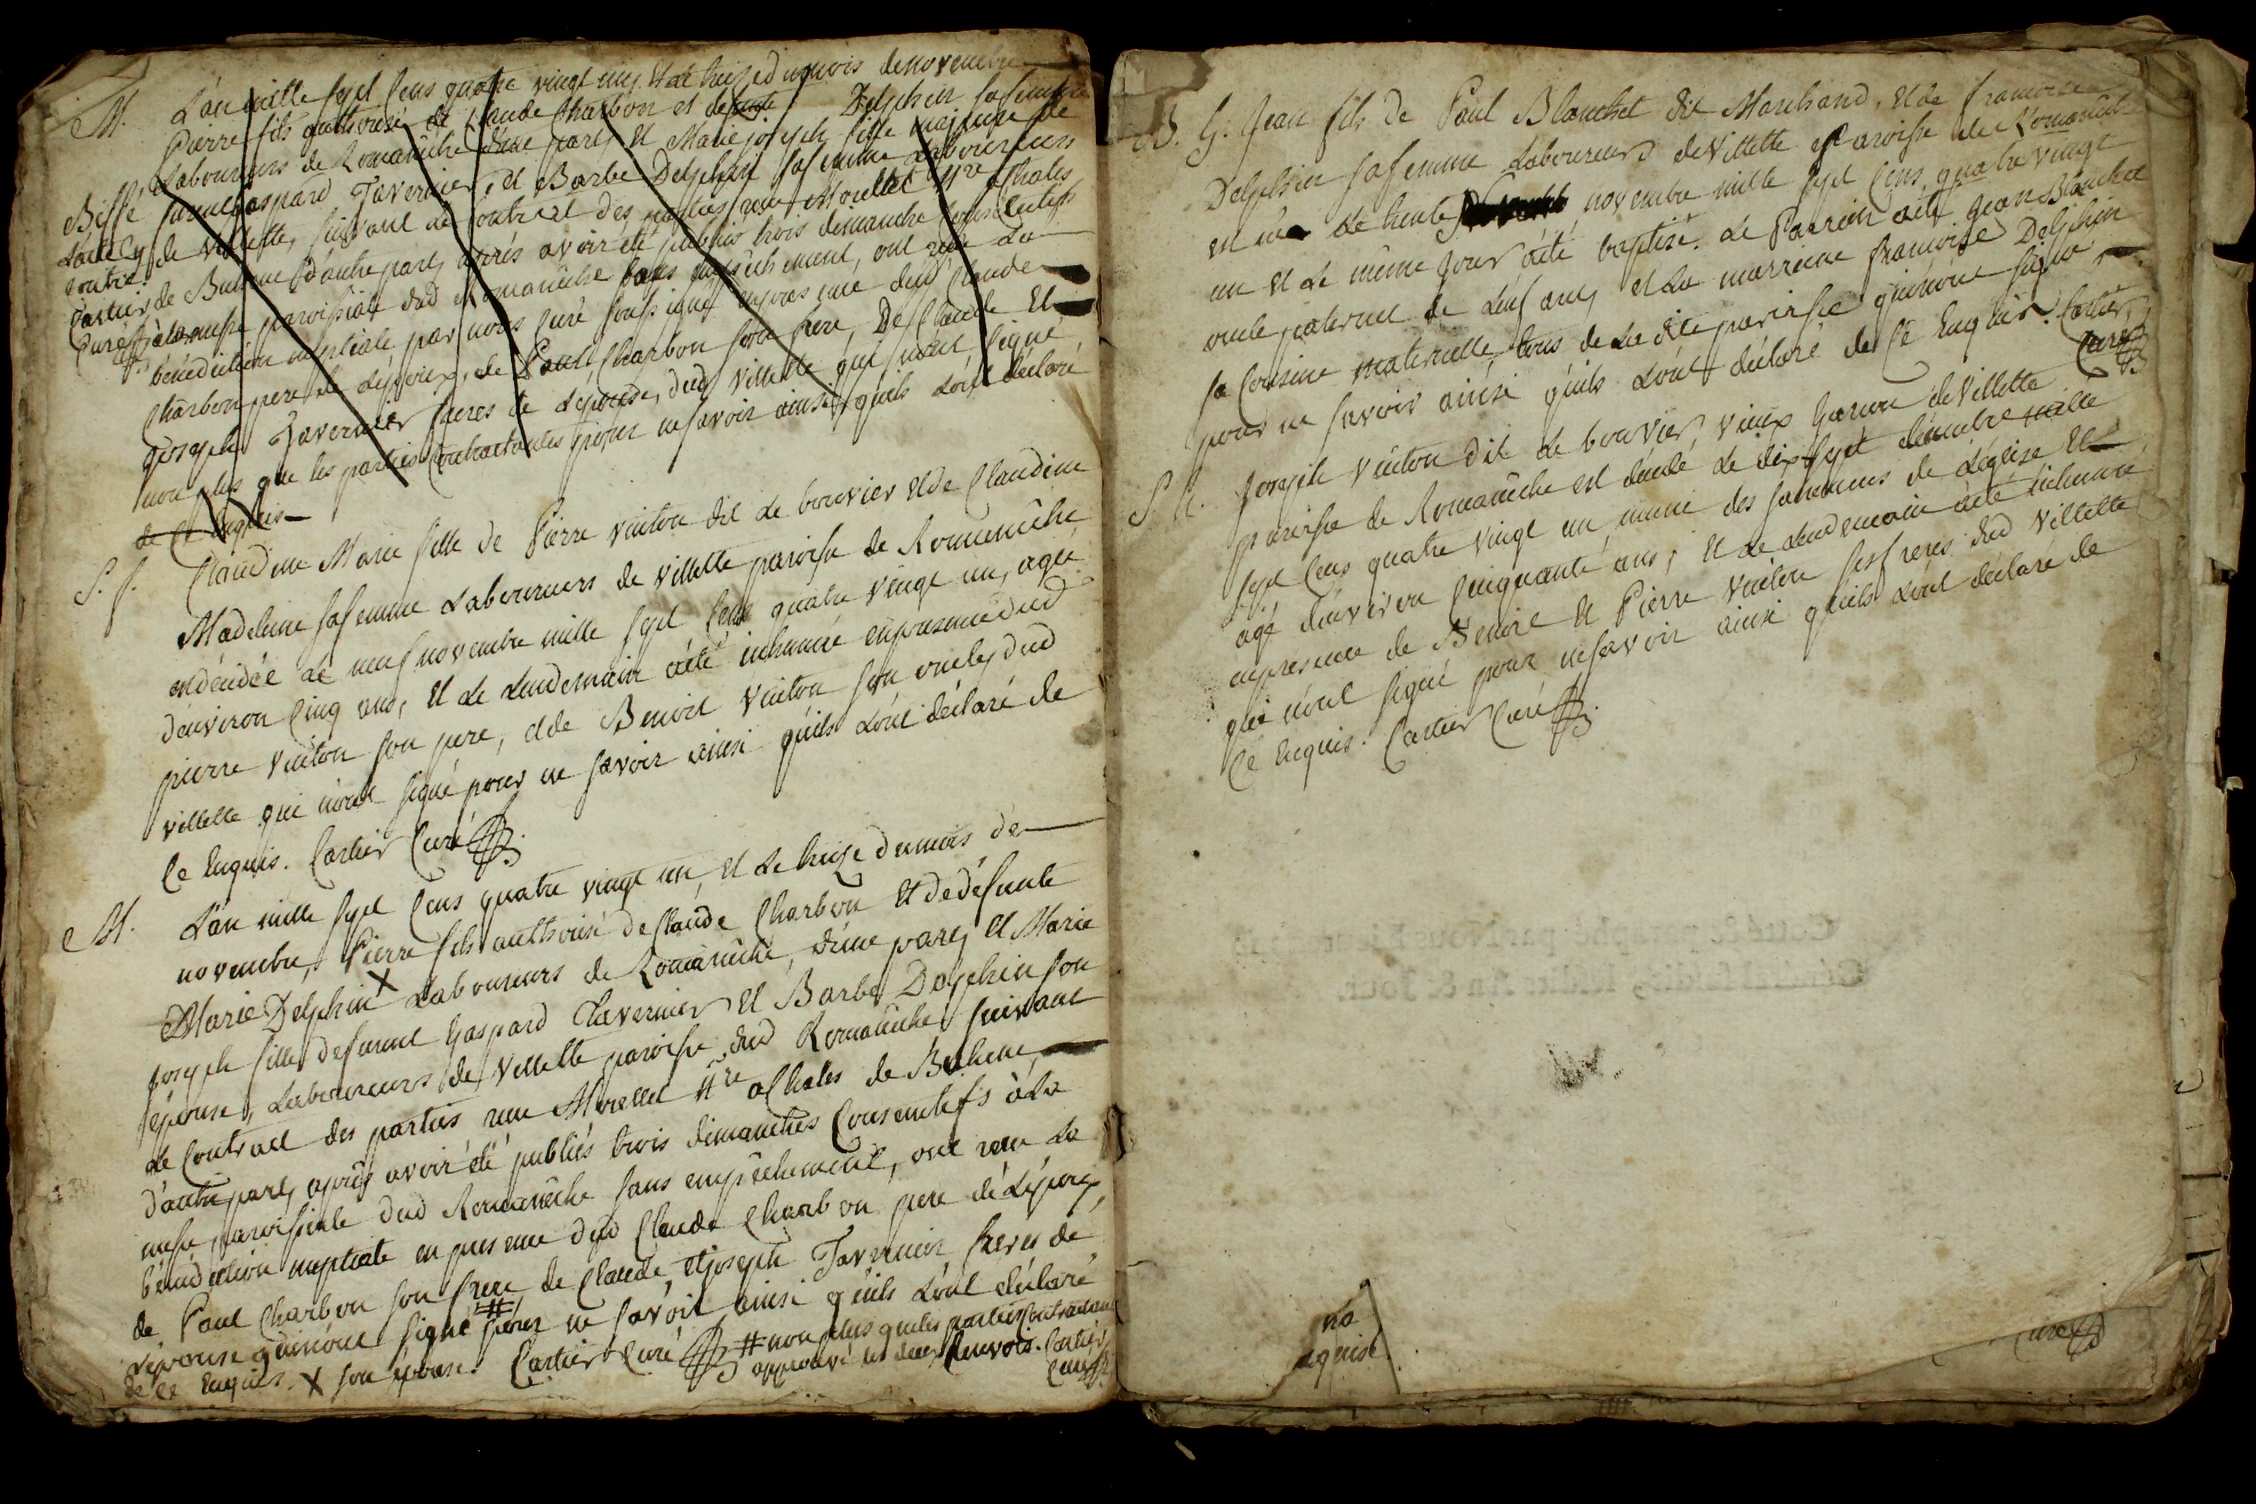 M. L'an mille sept cens quatre vingt un, et le treize du mois de novembre
Pierre fils authorisé de Claude Charbon et de Delphin sa femme
Laboureurs de Romanêche d'une part, et Marie joseph fille majeure de
Biffé feu Gaspard Tavernier, et Barbe Delphin sa femme Laboureurs
de Villette, suivant le contract des parties reçu Moellet Nre Chales
Cartier de Buhene d'autre part, après avoir été publiés trois dimanches consecutifs
Curé à la messe paroissiale dud Romanêche sans empêchement, ont reçu la
bénédiction nuptiale par nous curé soussigné en presence dud Claude
Charbon pere de L'époux, de Paul Charbon son frere, de Claude et
joseph Tavernier freres de L'épouse, dud Villette qui n'ont signé
non plus que les parties Contractantes pour ne savoir ainsi qu'ils L'ont déclaré
de Ce Enquis
S. f. Claudine Marie fille de Pierre Vuiton dit Le bouvier et de Claudine
Madeleine sa femme Laboureurs de Villette paroisse de Romenêche
est décédée Le neuf novembre mille sept Cens quatre vingt un, agée
d'environ Cinq ans, et Le Lendemain a été inhumée en presence dud
pierre Vuiton son pere, et de Benoit Vuiton son oncle, dud
Villette qui n'ont signé pour ne savoir ainsi qu'ils L'ont déclaré de
Ce Enquis. Cartier Curé
M. L'an mille sept Cens quatre vingt un, et Le treize du mois de
novembre, Pierre fils authorisé de Claude Charbon et de défunte
Marie Delphin X Laboureurs de Romanêche, d'une part, et Marie
joseph fille de funt Gaspard Tavernier et Barbe Delphin son
épouse, Laboureurs de Villette paroisse dud Romanêche, suivant
Le Contract des parties reçu Moellet Nre a Chales de Buhene,
d'autre part, après avoir été publiés trois dimanches Consecutifs à La
messe paroissiale dud Romanêche sans empêchement, ont reçu La
bénédiction nuptiale en presence dud Claude Charbon pere de L'époux,
de Paul Charbon son frere de Claude, et joseph Tavernier freres de
L'épouse qui n'ont signé # pour ne savoir ainsi qu'ils L'ont déclaré
de Ce Enquis. X son épouse. Cartier Curé # non plus que les parties Contractantes
approuvé les deux Renvois. Cartier
Curé
B. G. Jean fils de Paul Blanchet dit Marchand, et de francoise
Delphin sa femme Laboureurs de Villette paroisse de Romanêche
est né Le trente novembre mille sept Cens, quatre vingt
un et Le même jour a été baptisé. Le Parrein a été Jean Blanchet
oncle paternel de L'enfant, et La marreine francoise Delphin
sa Cousine maternelle, tous de La dite paroisse qui n'ont signé
pour ne savoir ainsi qu'ils L'ont déclaré de Ce Enquis. Cartier
Curé
S. G. Joseph Vuiton dit Le bouvier, vieux garcon de Villette
paroisse de Romanêche est décédé Le dix sept décembre mille
sept Cens quatre vingt un, muni des sacremens de L'église et
agé d'environ Cinquante ans, et Le Lendemain a été inhumé
en presence de Benoit et Pierre Vuiton ses freres dud Villette
qui n'ont signé pour ne savoir ainsi qu'ils L'ont déclaré de
Ce Enquis. Cartier Curé
curé